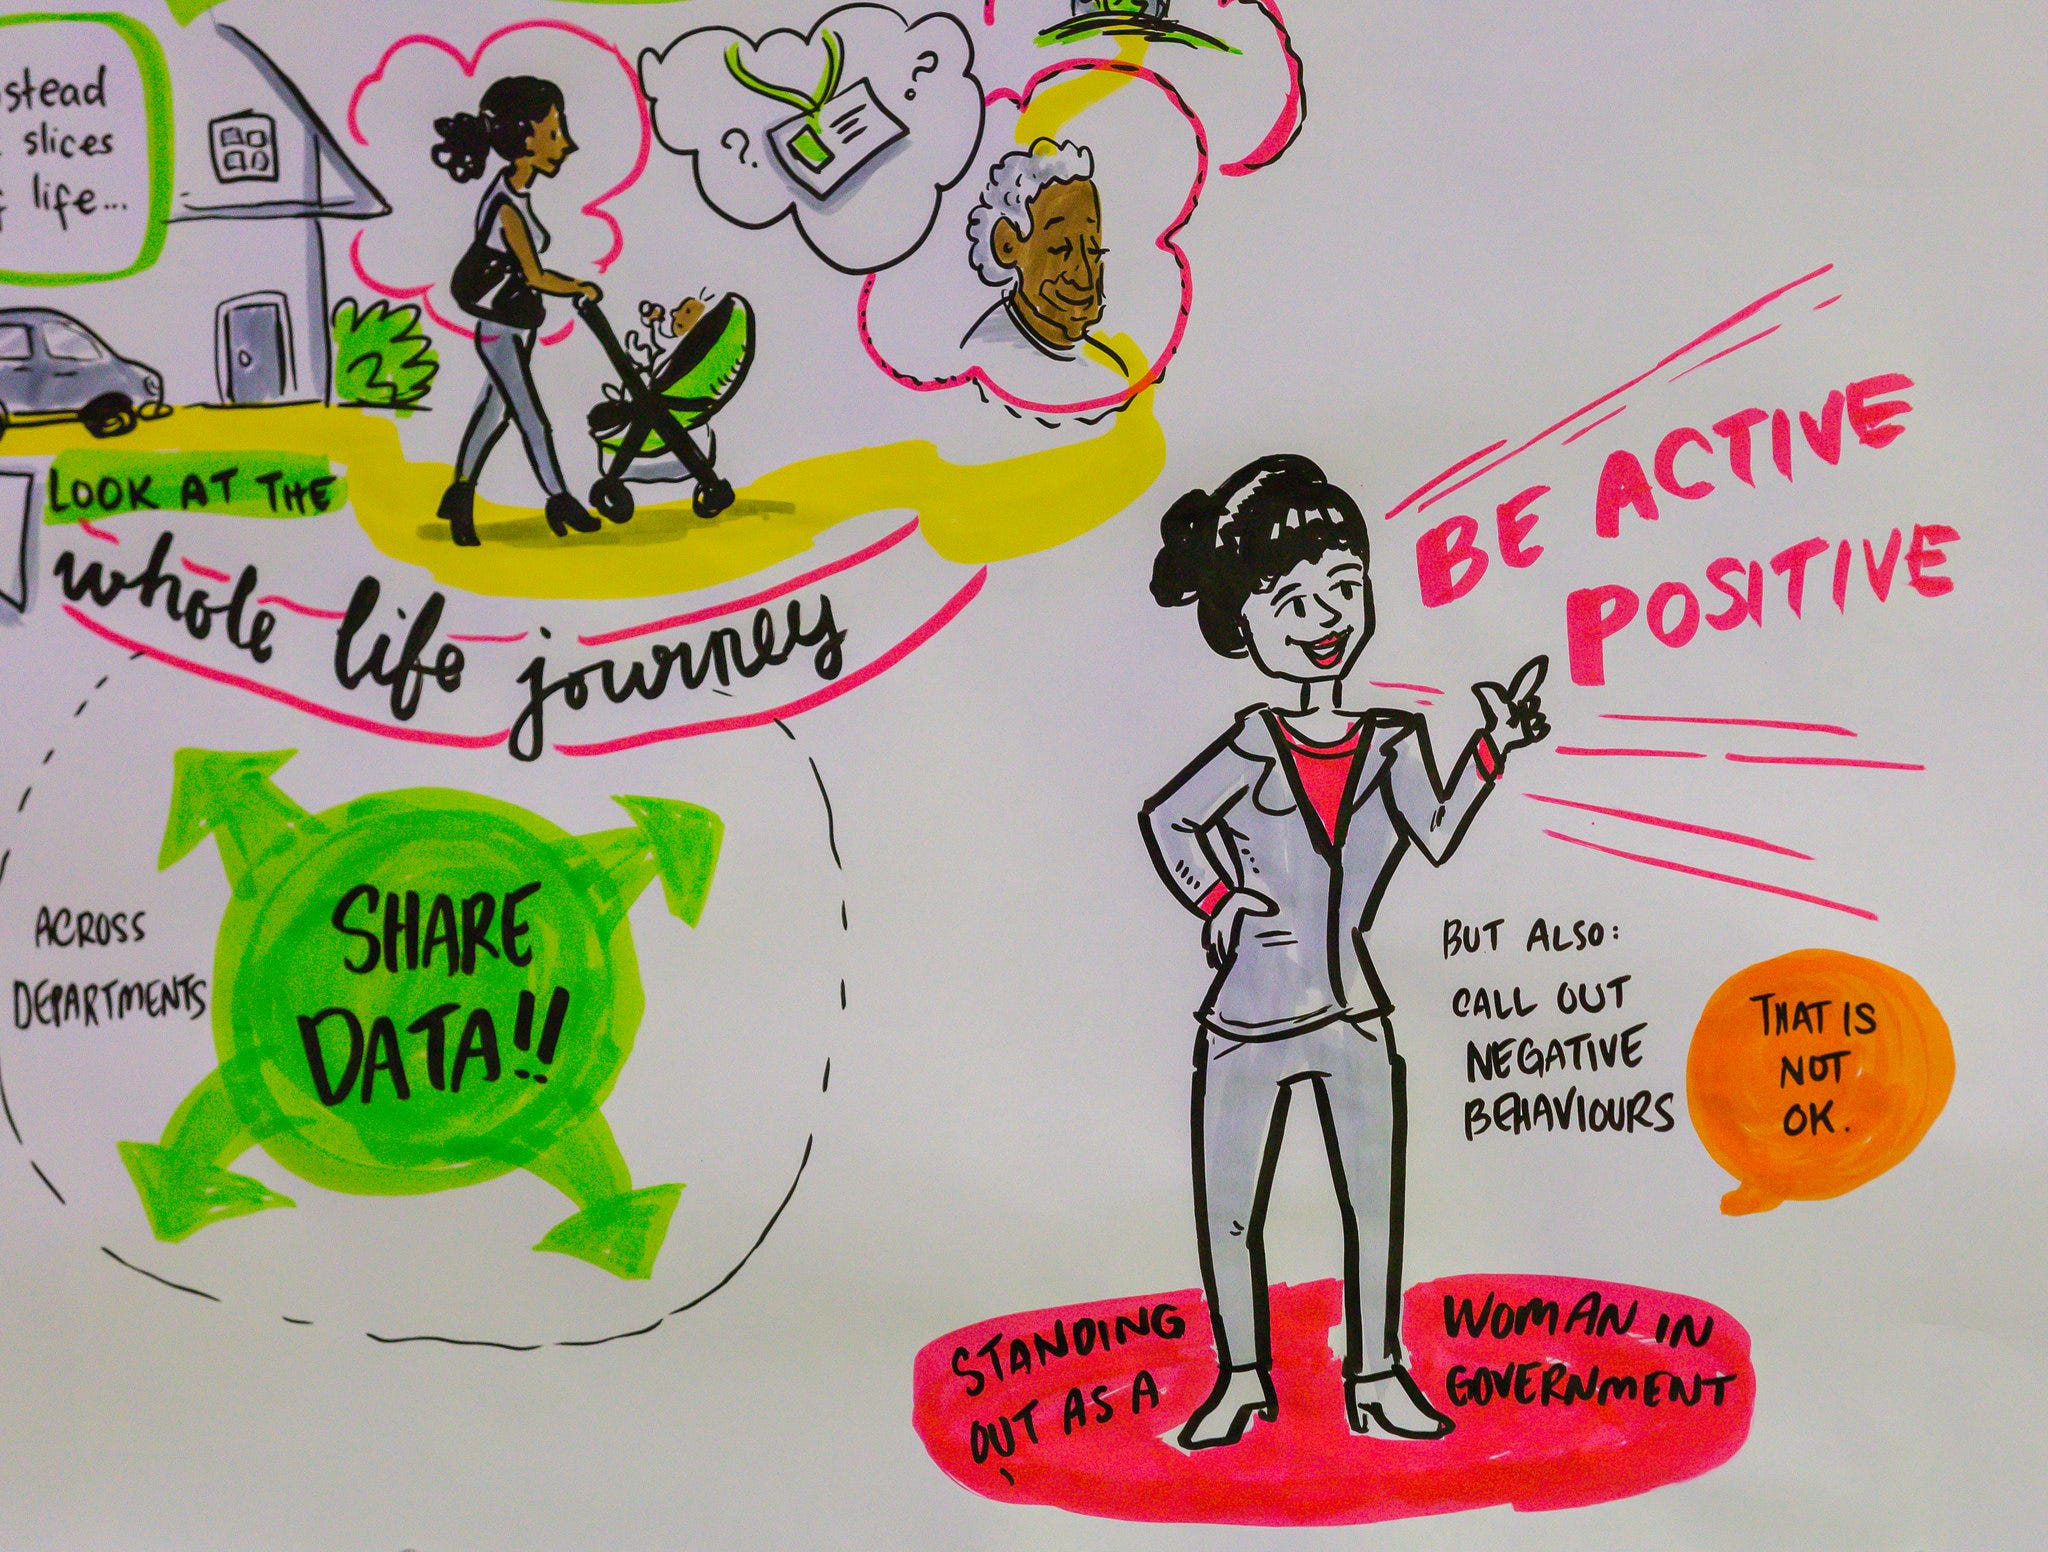 slices
life...
LOOK AT THE
whole life journey
ACROSS
DEPARTMENTS
SHARE
DATA!!
BE ACTIVE
POSITIVE
BUT ALSO:
CALL OUT
NEGATIVE
BEHAVIOURS
THAT IS
NOT
OK.
STANDING
OUT AS A
WOMAN IN
GOVERNMENT